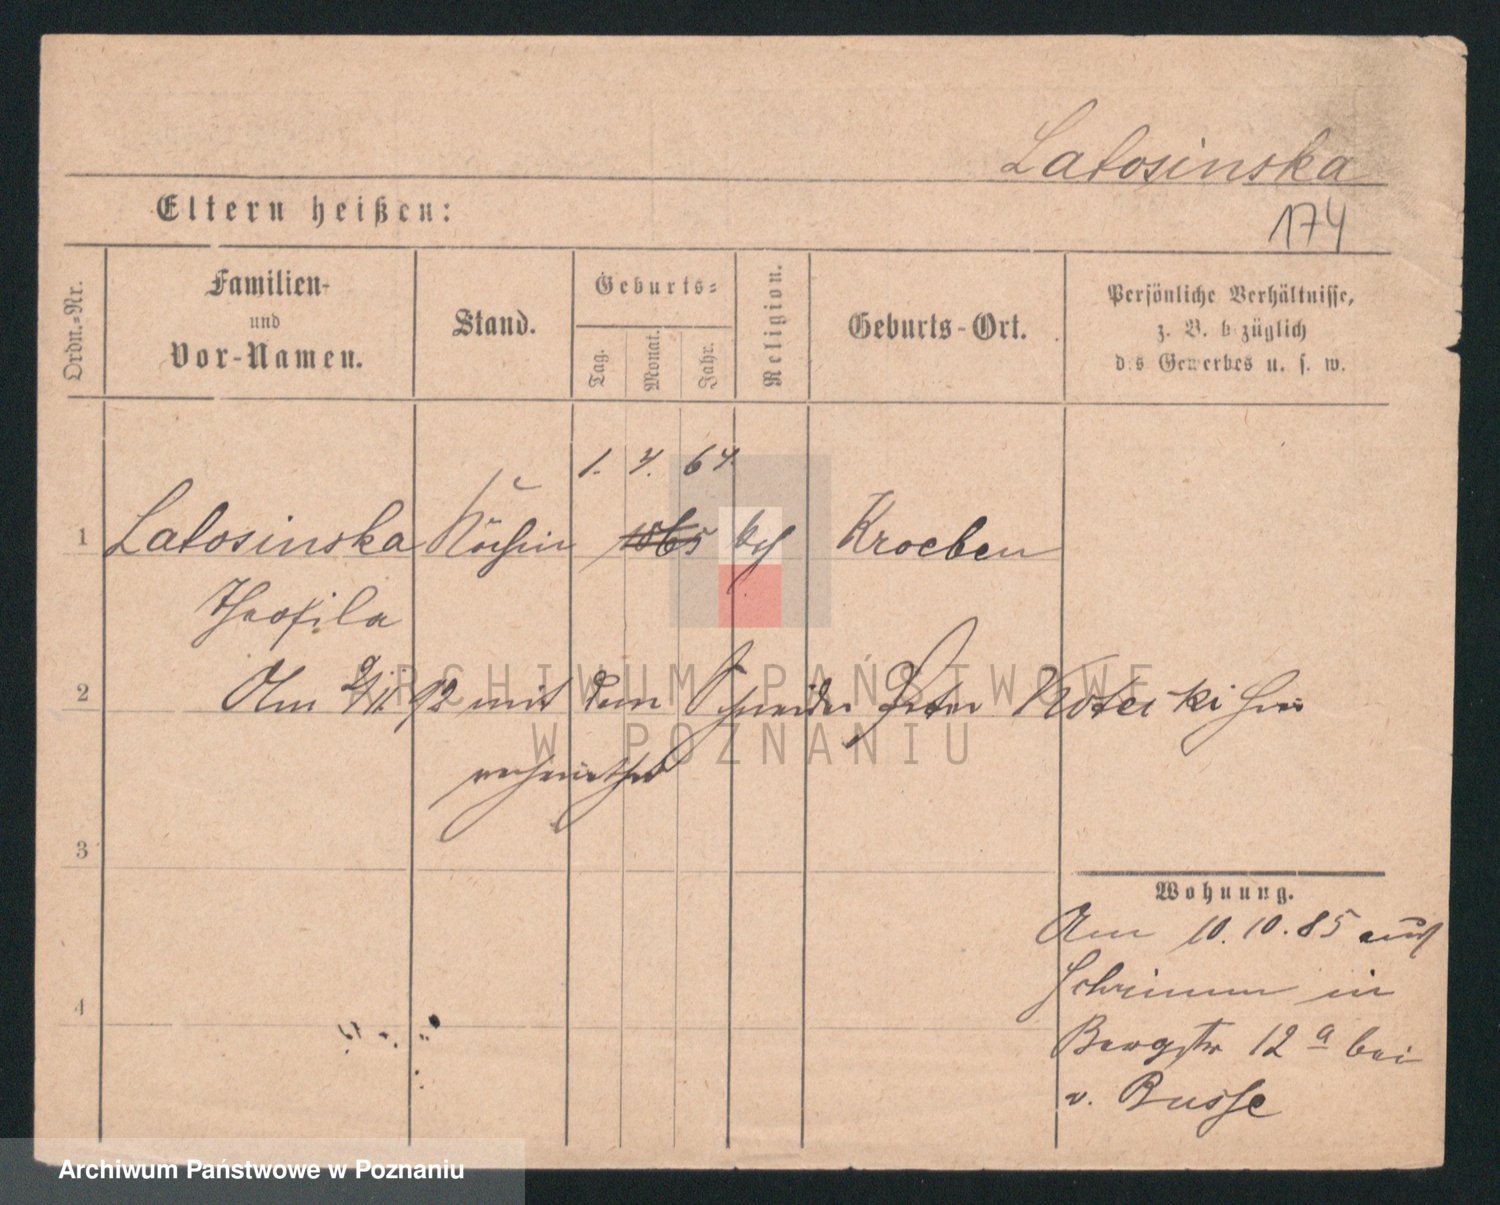 Latosinska
Eltern heißen:
174
Ordn.-Nr.
Familien-
und
Vor-Namen.
Stand.
Geburts-
Tag.
Monat.
Jahr.
Religion.
Geburts-Ort.
Persönliche Verhältnisse,
z. B. bezüglich
des Gewerbes u. s. w.
1. 4. 64.
1 Latosinska Köchin 1865 kath Kroeben
Theofila
2 Am 9/11 92 mit dem Schneider Peter Kotecki hier
verheirathet
3
Wohnung.
Am 10.10.85 aus
Schrimm in
4
Bergstr 12 a bei
v. Busse
ARCHIWUM PAŃSTWOWE
W POZNANIU
Archiwum Państwowe w Poznaniu